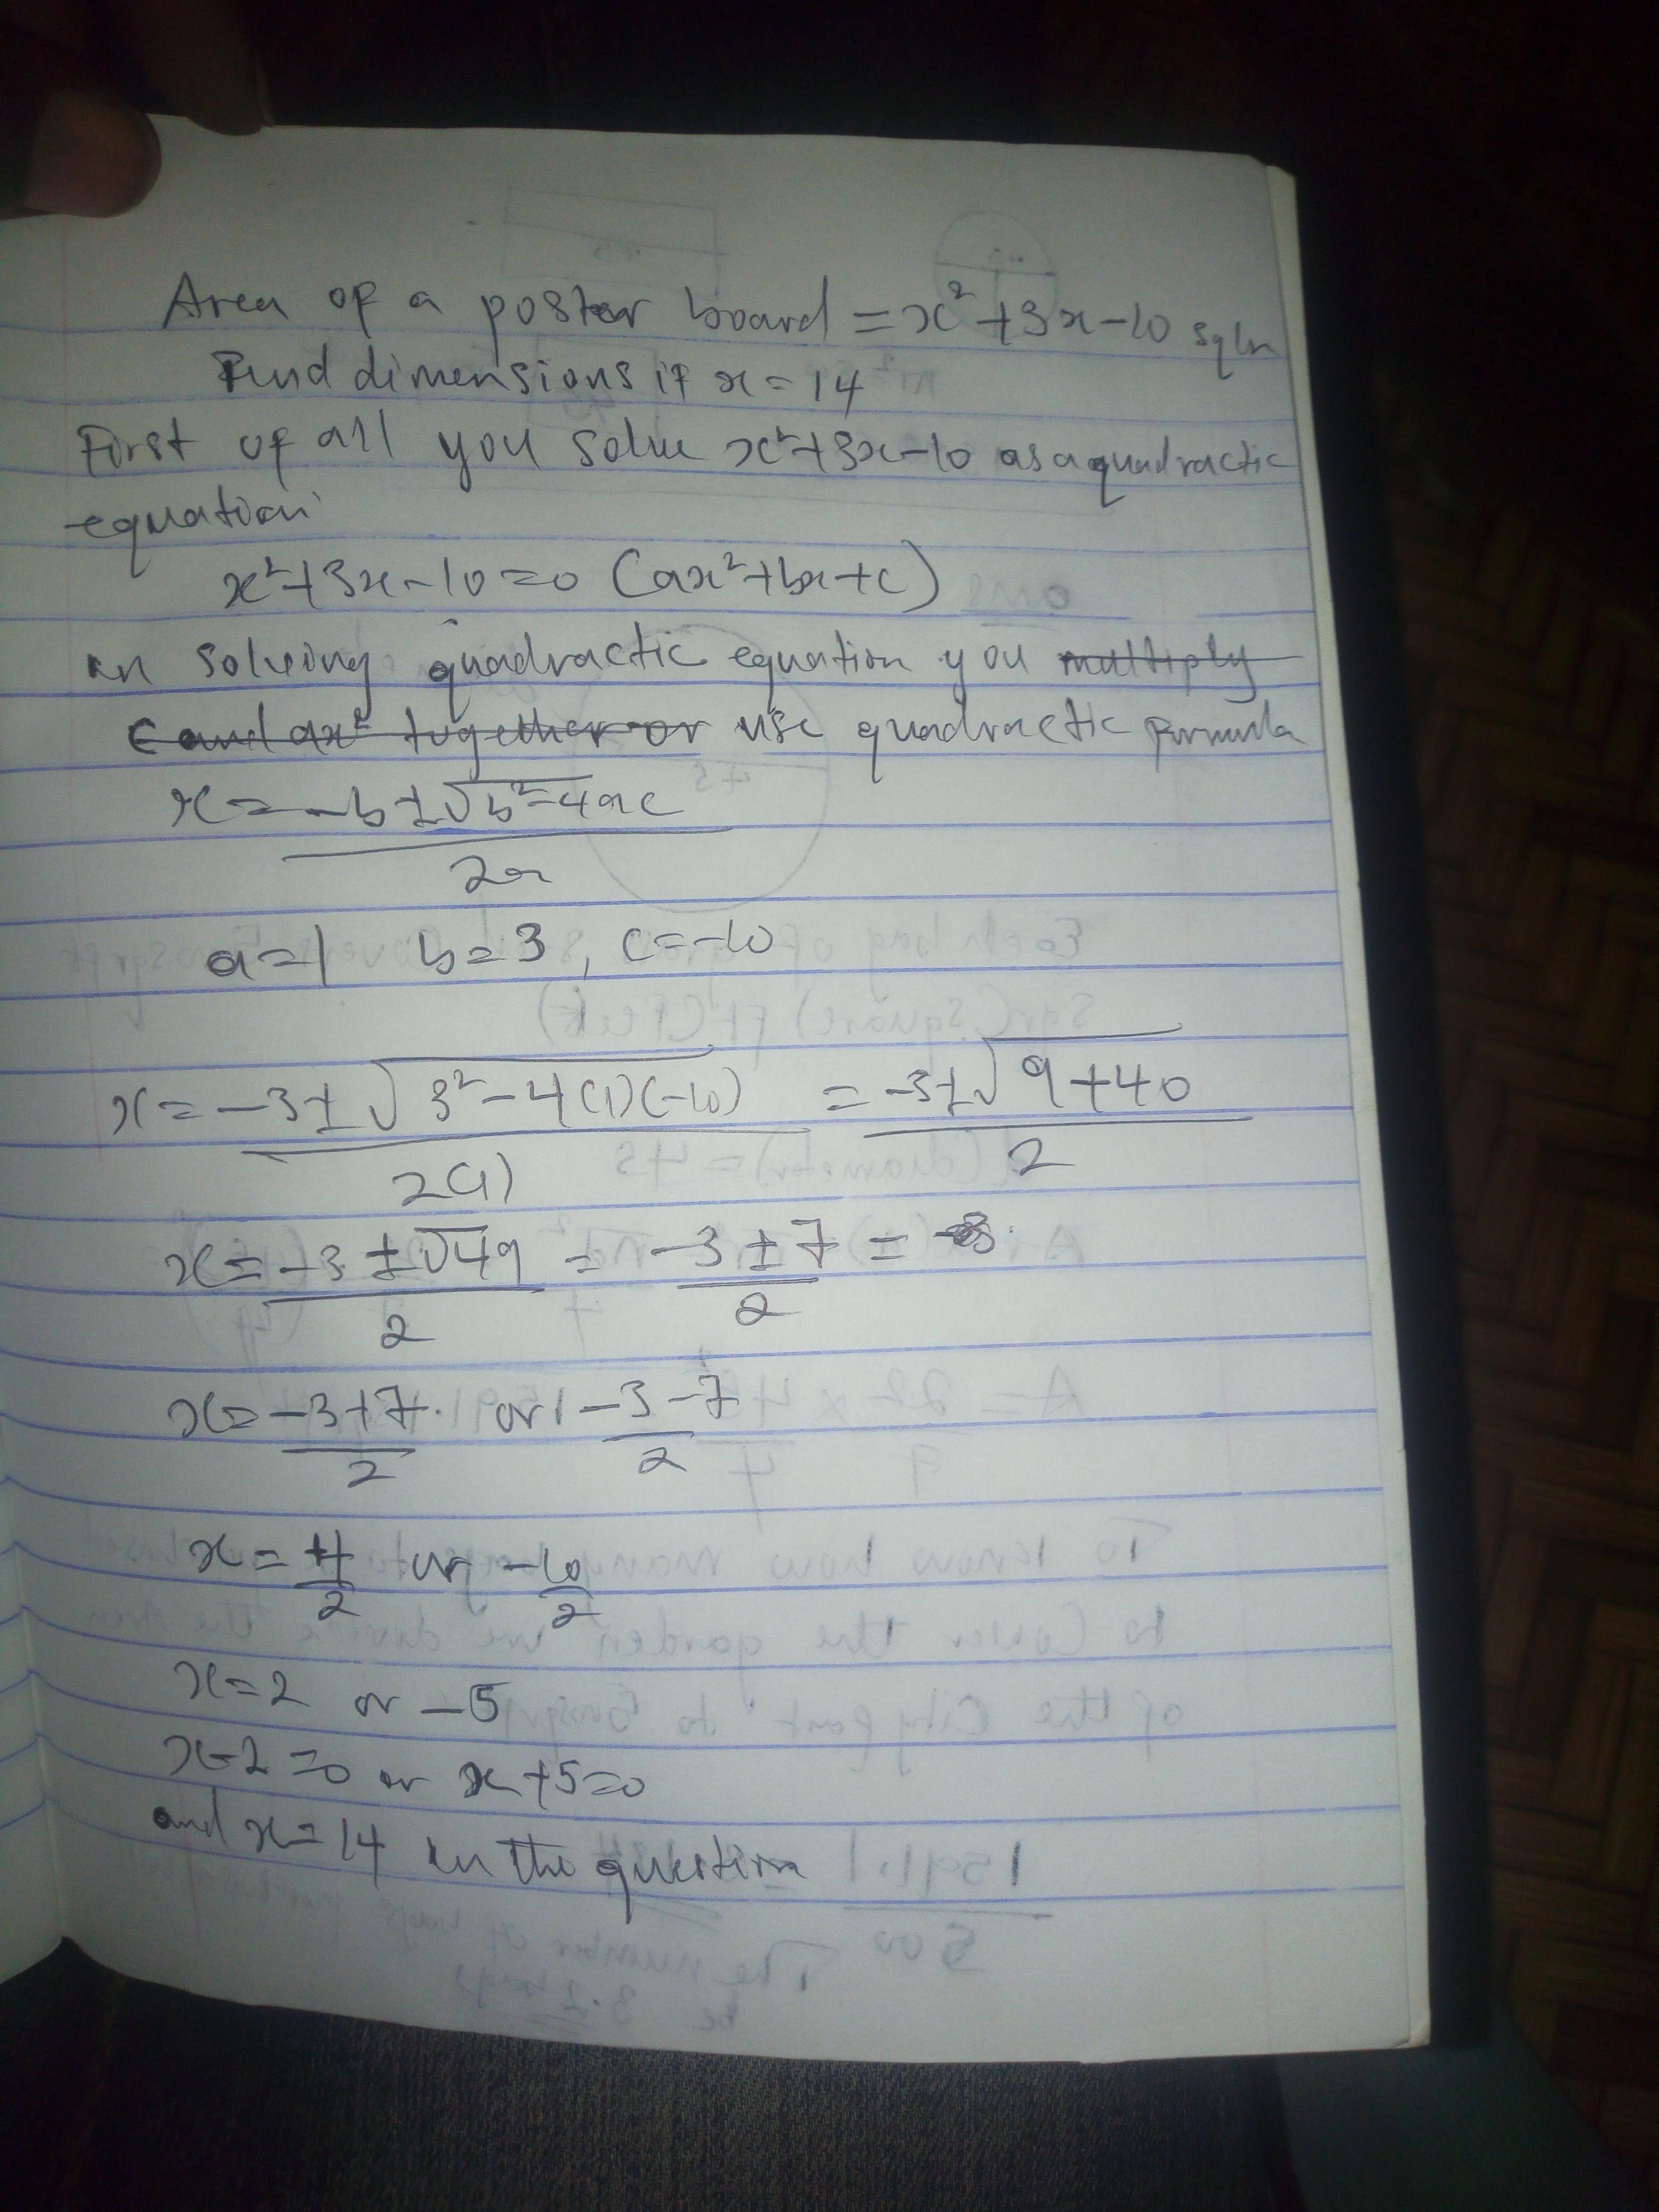 Area of a poster board = x² + 3x - 10 sq in
Find dimensions if x = 14
First of all you solve x² + 3x - 10 as a quadractic
equation
x² + 3x - 10 = 0 (ax² + bx + c)
in solving quadractic equation you multiply
c and ax² together or use quadractic formula
x = -b ± √b² - 4ac
2a
a = 1 b = 3, c = -10
x = -3 ± √3² - 4(1)(-10) = -3 ± √9 + 40
2(1) 2
x = -3 ± √49 = -3 ± 7 =
2 2
x = -3 + 7 or -3 - 7
2 2
x = 4 or -10
2 2
x = 2 or -5
x - 2 = 0 or x + 5 = 0
and x = 14 in the question